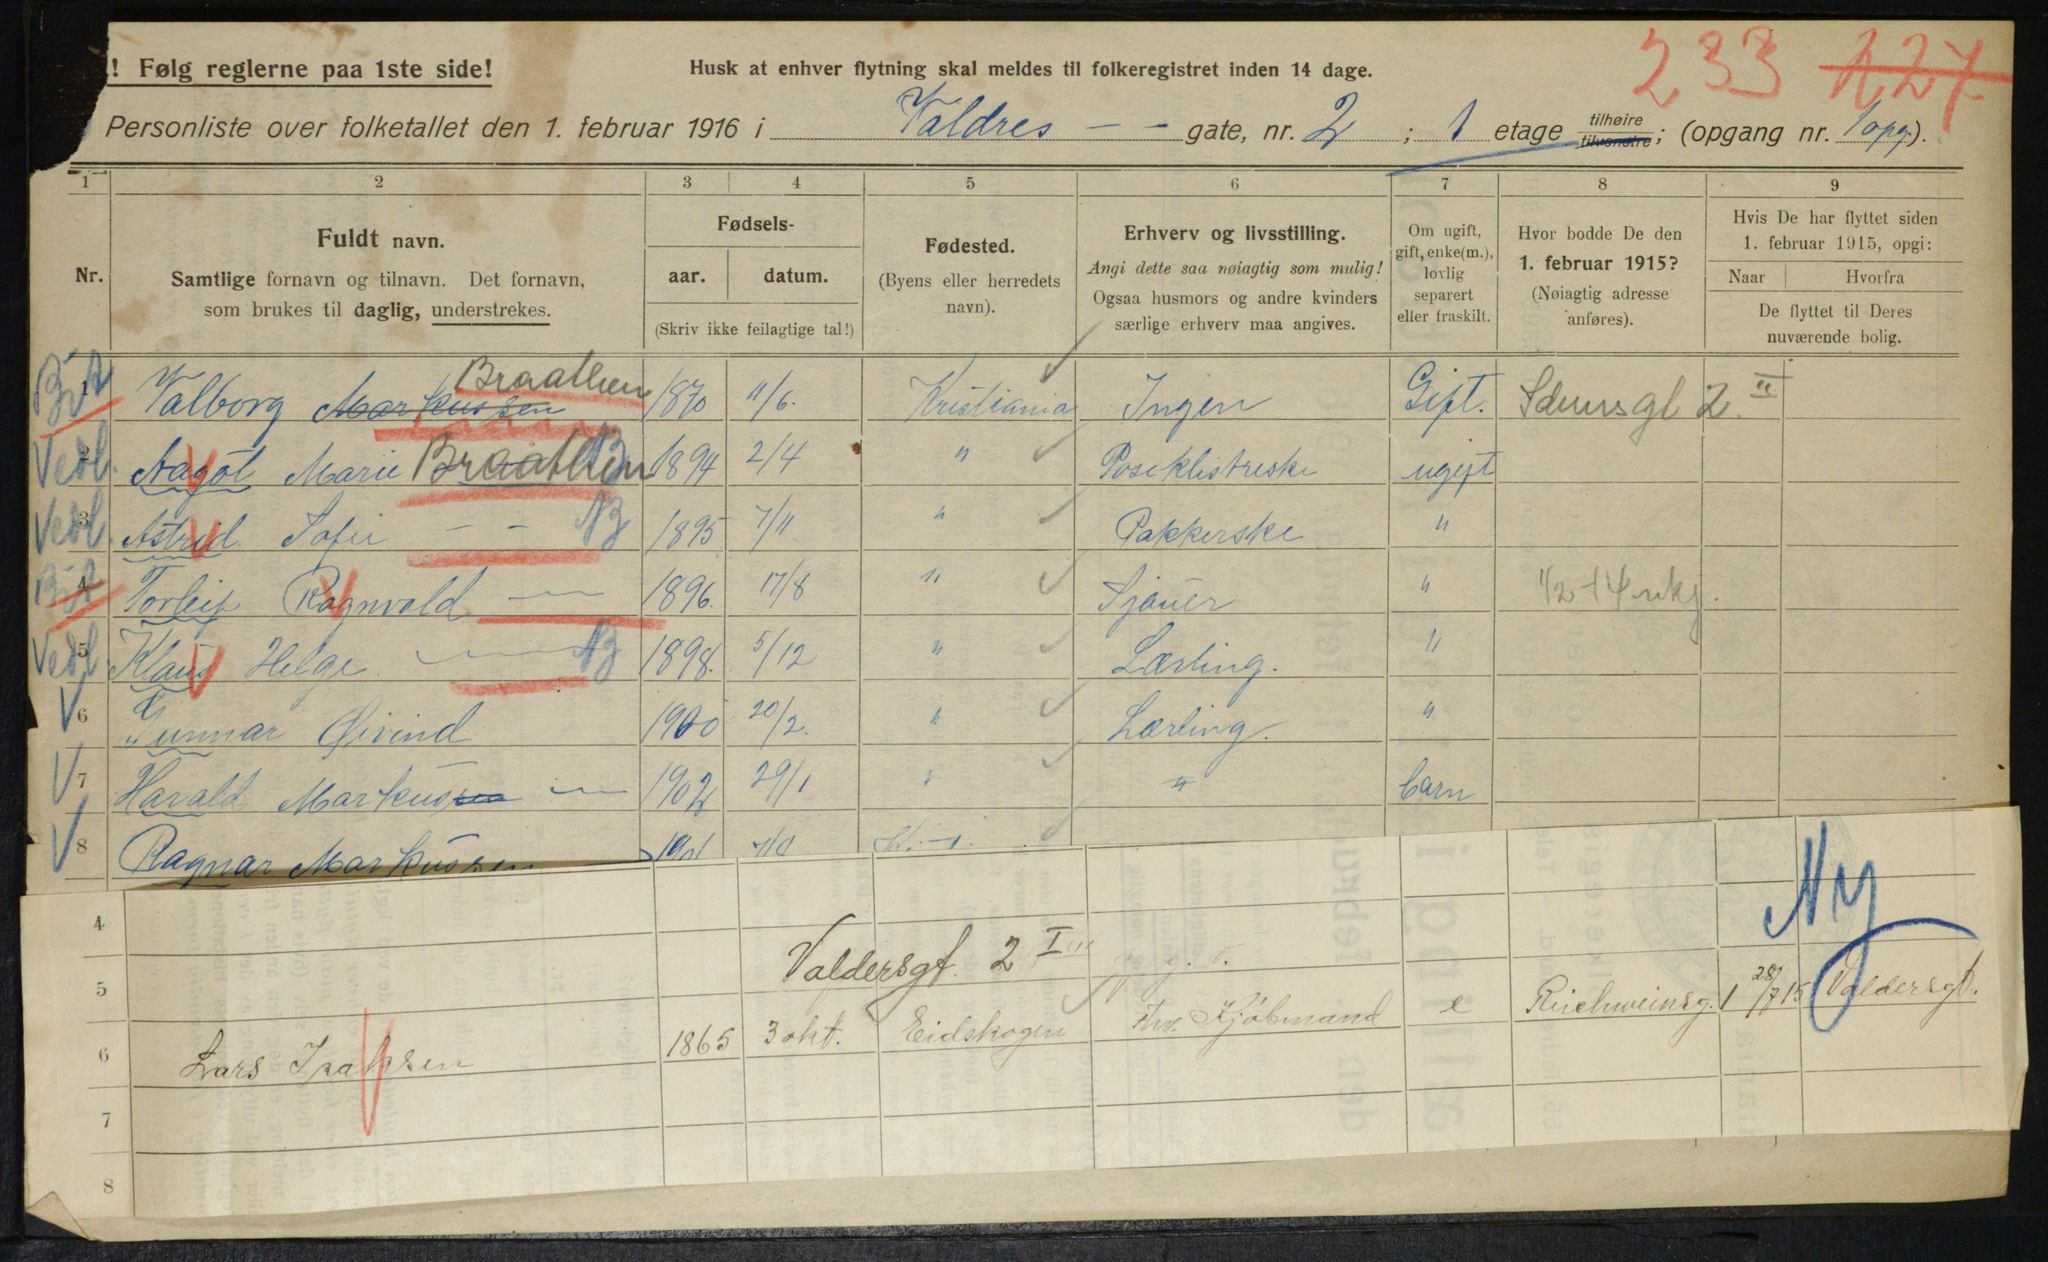 ! Følg reglerne paa 1ste side!
Husk at enhver flytning skal meldes til folkeregistret inden 14 dage.
233 127
Personliste over folketallet den 1. februar 1916 i Valdres - - gate, nr. 2 ; 1 etage tilhøire tilvenstre; (opgang nr. 1 opg.).
1 2 3 4 5 6 7 8 9
Nr.
Fuldt navn.
Samtlige fornavn og tilnavn. Det fornavn,
som brukes til daglig, understrekes.
Fødsels-
aar. datum.
(Skriv ikke feilagtige tal!)
Fødested.
(Byens eller herredets
navn).
Erhverv og livsstilling.
Angi dette saa nøiagtig som mulig!
Ogsaa husmors og andre kvinders
særlige erhverv maa angives.
Om ugift,
gift, enke(m.),
lovlig
separert
eller fraskilt.
Hvor bodde De den
1. februar 1915?
(Nøiagtig adresse
anføres).
Hvis De har flyttet siden
1. februar 1915, opgi:
Naar Hvorfra
De flyttet til Deres
nuværende bolig.
1 Valborg Markussen Braathen 1870 11/6. Kristiania Ingen Gift. 2 II
Vedl. 2 Aagot Marie Braathen 1894 2/4 " Poseklistreske ugift
Vedl. 3 Astrid Sofie - - 1895 7/11 " Pakkerske "
4 Torleif Ragnvald - 1896. 17/8 " Sjauer "
Vedl 5 Klaus Helge - 1898. 5/12 " Lærling. "
V 6 Gunnar Øivind 1900 20/2. " Lærling. "
V 7 Harald Markussen - 1902 29/1 " " barn
V 8 Ragnar Markussen
Ny
4
Valdersgt. 2 I
5
6 Lars Isaksen 1865 3 okt. Eidskogen Kjøbmand e Reichweinsg. 1 28/7 15 Valdersgt.
7
8